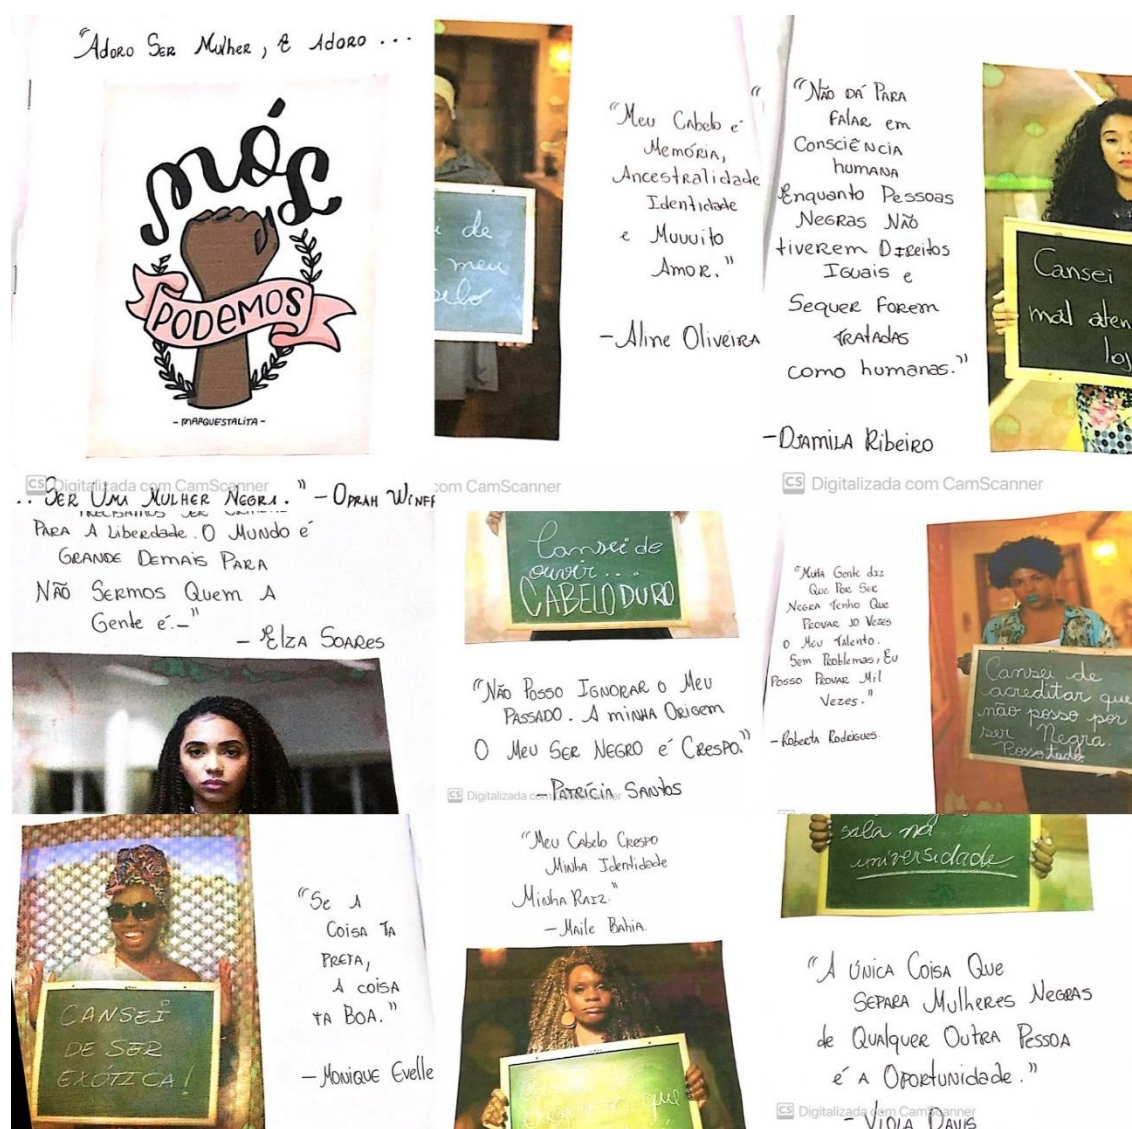 "Adoro Ser Mulher, e Adoro ...
Nós
PODEMOS
- MARQUESTALITA -
CS Digitalizada com CamScanner
... Ser Uma Mulher Negra." - Oprah Winf
i de
meu
"Meu Cabelo é
Memória,
Ancestralidade
Identidade
e Muuuito
Amor."
- Aline Oliveira
com CamScanner
"Não dá Para
falar em
Consciência
humana
Enquanto Pessoas
Negras Não
tiverem Direitos
Iguais e
Sequer Forem
tratadas
como humanas."
- Djamila Ribeiro
Cansei
mal aten
loj
CS Digitalizada com CamScanner
Para A Liberdade. O Mundo é
Grande Demais Para
Não Sermos Quem A
Gente é.-"
- Elza Soares
Cansei de
ouvir...
CABELO DURO
"Não Posso Ignorar o Meu
Passado. A minha Origem
O Meu Ser Negro é Crespo."
- Patrícia Santos
CS Digitalizada com CamScanner
"Muita Gente diz
Que Por Ser
Negra Tenho Que
Provar 10 Vezes
O Meu Talento.
Sem Problemas, Eu
Posso Provar Mil
Vezes."
- Roberta Rodrigues.
Cansei de
acreditar que
não posso por
ser Negra.
Posso tudo.
CANSEI
DE SER
EXÓTICA!
"Se A
Coisa Ta
Preta,
A coisa
ta Boa."
- Monique Evelle
"Meu Cabelo Crespo
Minha Identidade
Minha Raiz."
- Maile Bahia.
que
sala na
universidade
"A única Coisa Que
Separa Mulheres Negras
de Qualquer Outra Pessoa
é a Oportunidade."
CS Digitalizada com CamScanner
- Viola Davis